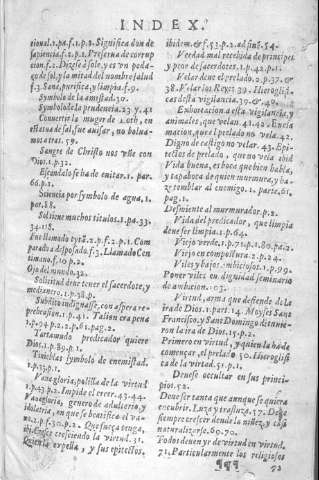 INDEX.
cional.1.pa.f.1.p.2. Significa don de
sapiencia.f.2.p.1. Preserua de corrup
cion.f.2. Dizese à sole, y es vn peda-
ço de sol, y la mitad del nombre salud
f.3. Sane, purifica, y limpia.f.9.
Symbolo de la amistad.30.
Symbolo de la prudencia.23.y 41
Conuertir la muger de Loth, en
estatua de sal, fue auisar, no bolua-
mos atras.59.
Sangre de Christo nos vsse con
Dios.1.p.32.
Escandalo se ha de euitar.1. par.
66.p.1.
Sciencia por symbolo de agua, 1.
par.88.
Sobrine muchos titulos.1.pa.33.
34.118.
paradoa desposado.f.3. Llamado Cen
timano.f.10.p.2.
Ojo del mundo.32.
Solicitud deue tener el sacerdote, y
medianero.1.p.38.p.
Subditos indignasse, con aspera re-
prehension.1.p.41. Talion era pena
1.p.94.p.2.2.p.61.pag.2.
Tartaundo predicador quiere
Dios.1.p.89.p.1.
Tinieblas symbolo de enemistad.
1.p.33.p.1.
Vanagloria, polilla de la virtud
1.p.43.p.2. Impide el creer.43.44.
Vanagloria, genero de adulterio, y
idolatria, en que se beatifica el va-
no.1.p.30.p.2. Que fuerça tenga,
ibi. Crece creciendo la virtud.31.
Quien la expella, y sus epitectos.
ibidem. & f.53.p.2. ad fin.54.
Verdad mal recebida de principes
y peor de sacerdotes.1.p.42.p.1.
Velar deue el prelado.2.p.37.&
38. Velar los Reyes 39. Hierogliფi-
cas desta vigilancia.39.& 48.
Exhortacion a esta vigilancia, y
animales, que velan.41.40. Encla
macion, que el prelado no vela.42.
Digno de castigo no velar.43. Epi-
tectos de prelado, que no vela ibid
Vida buena, es boca que bien habla,
y tapaboca de quien murmura, y ha-
ze temblar al enemigo.1.parte.61,
pag.1.
Desmiente al murmurador.p.2.
Vida del predicador, que limpia
deue ser limpia.1.p.64.
Viejo verde.1.p.71.p.1.80.pa.2.
Viejo en compostura.2.p.24.
Viles y bajos ambiciosos.1.p.99.
Poner viles en dignidad seminario
de ambicion.103.
Virtud, arma que desiende de la
ira de Dios.1.part.14. Moyses Sanct
Francisco, y Sancto Domingo detuuie-
ron la ira de Dios.15.p.2.
Primero en virtud, y quien la ha de
començar, el prelado 50. Hieroglifi-
ca de la virtud.51.p.1.
Deuese occultar en sus princi-
pios.52.
Deue ser tanta que aunque se quiera
encubrir. Luza y trasluza.57. Deue
siempre crecer desde la niñez y casi
naturalizarse.69.70.
Todos deuen yr de virtud en virtud.
71. Particularmente los religiosos
¶¶¶ 72